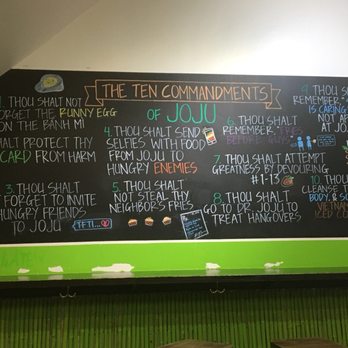 THE TEN COMMANDMENTS
OF JOJU
1. THOU SHALT NOT
FORGET THE RUNNY EGG
ON THE BANH MI
SHALT PROTECT THY
CARD FROM HARM
3. THOU SHALT
FORGET TO INVITE
HUNGRY FRIENDS
TO JOJU
TFTI...
4. THOU SHALT SEND
SELFIES WITH FOOD
FROM JOJU TO
HUNGRY ENEMIES
5. THOU SHALT
NOT STEAL THY
NEIGHBOR'S FRIES
6. THOU SHALT
REMEMBER, "FRIES
BEFORE GUYS"
7. THOU SHALT ATTEMPT
GREATNESS BY DEVOURING
#1-13
8. THOU SHALT
GO TO DR. JOJU TO
TREAT HANGOVERS
9. THOU
SHALT
REMEMBER
IS CARING
NOT AP
AT JO
10. THOU
CLEANSE T
BODY, & SO
VIETNAM
ICED CO